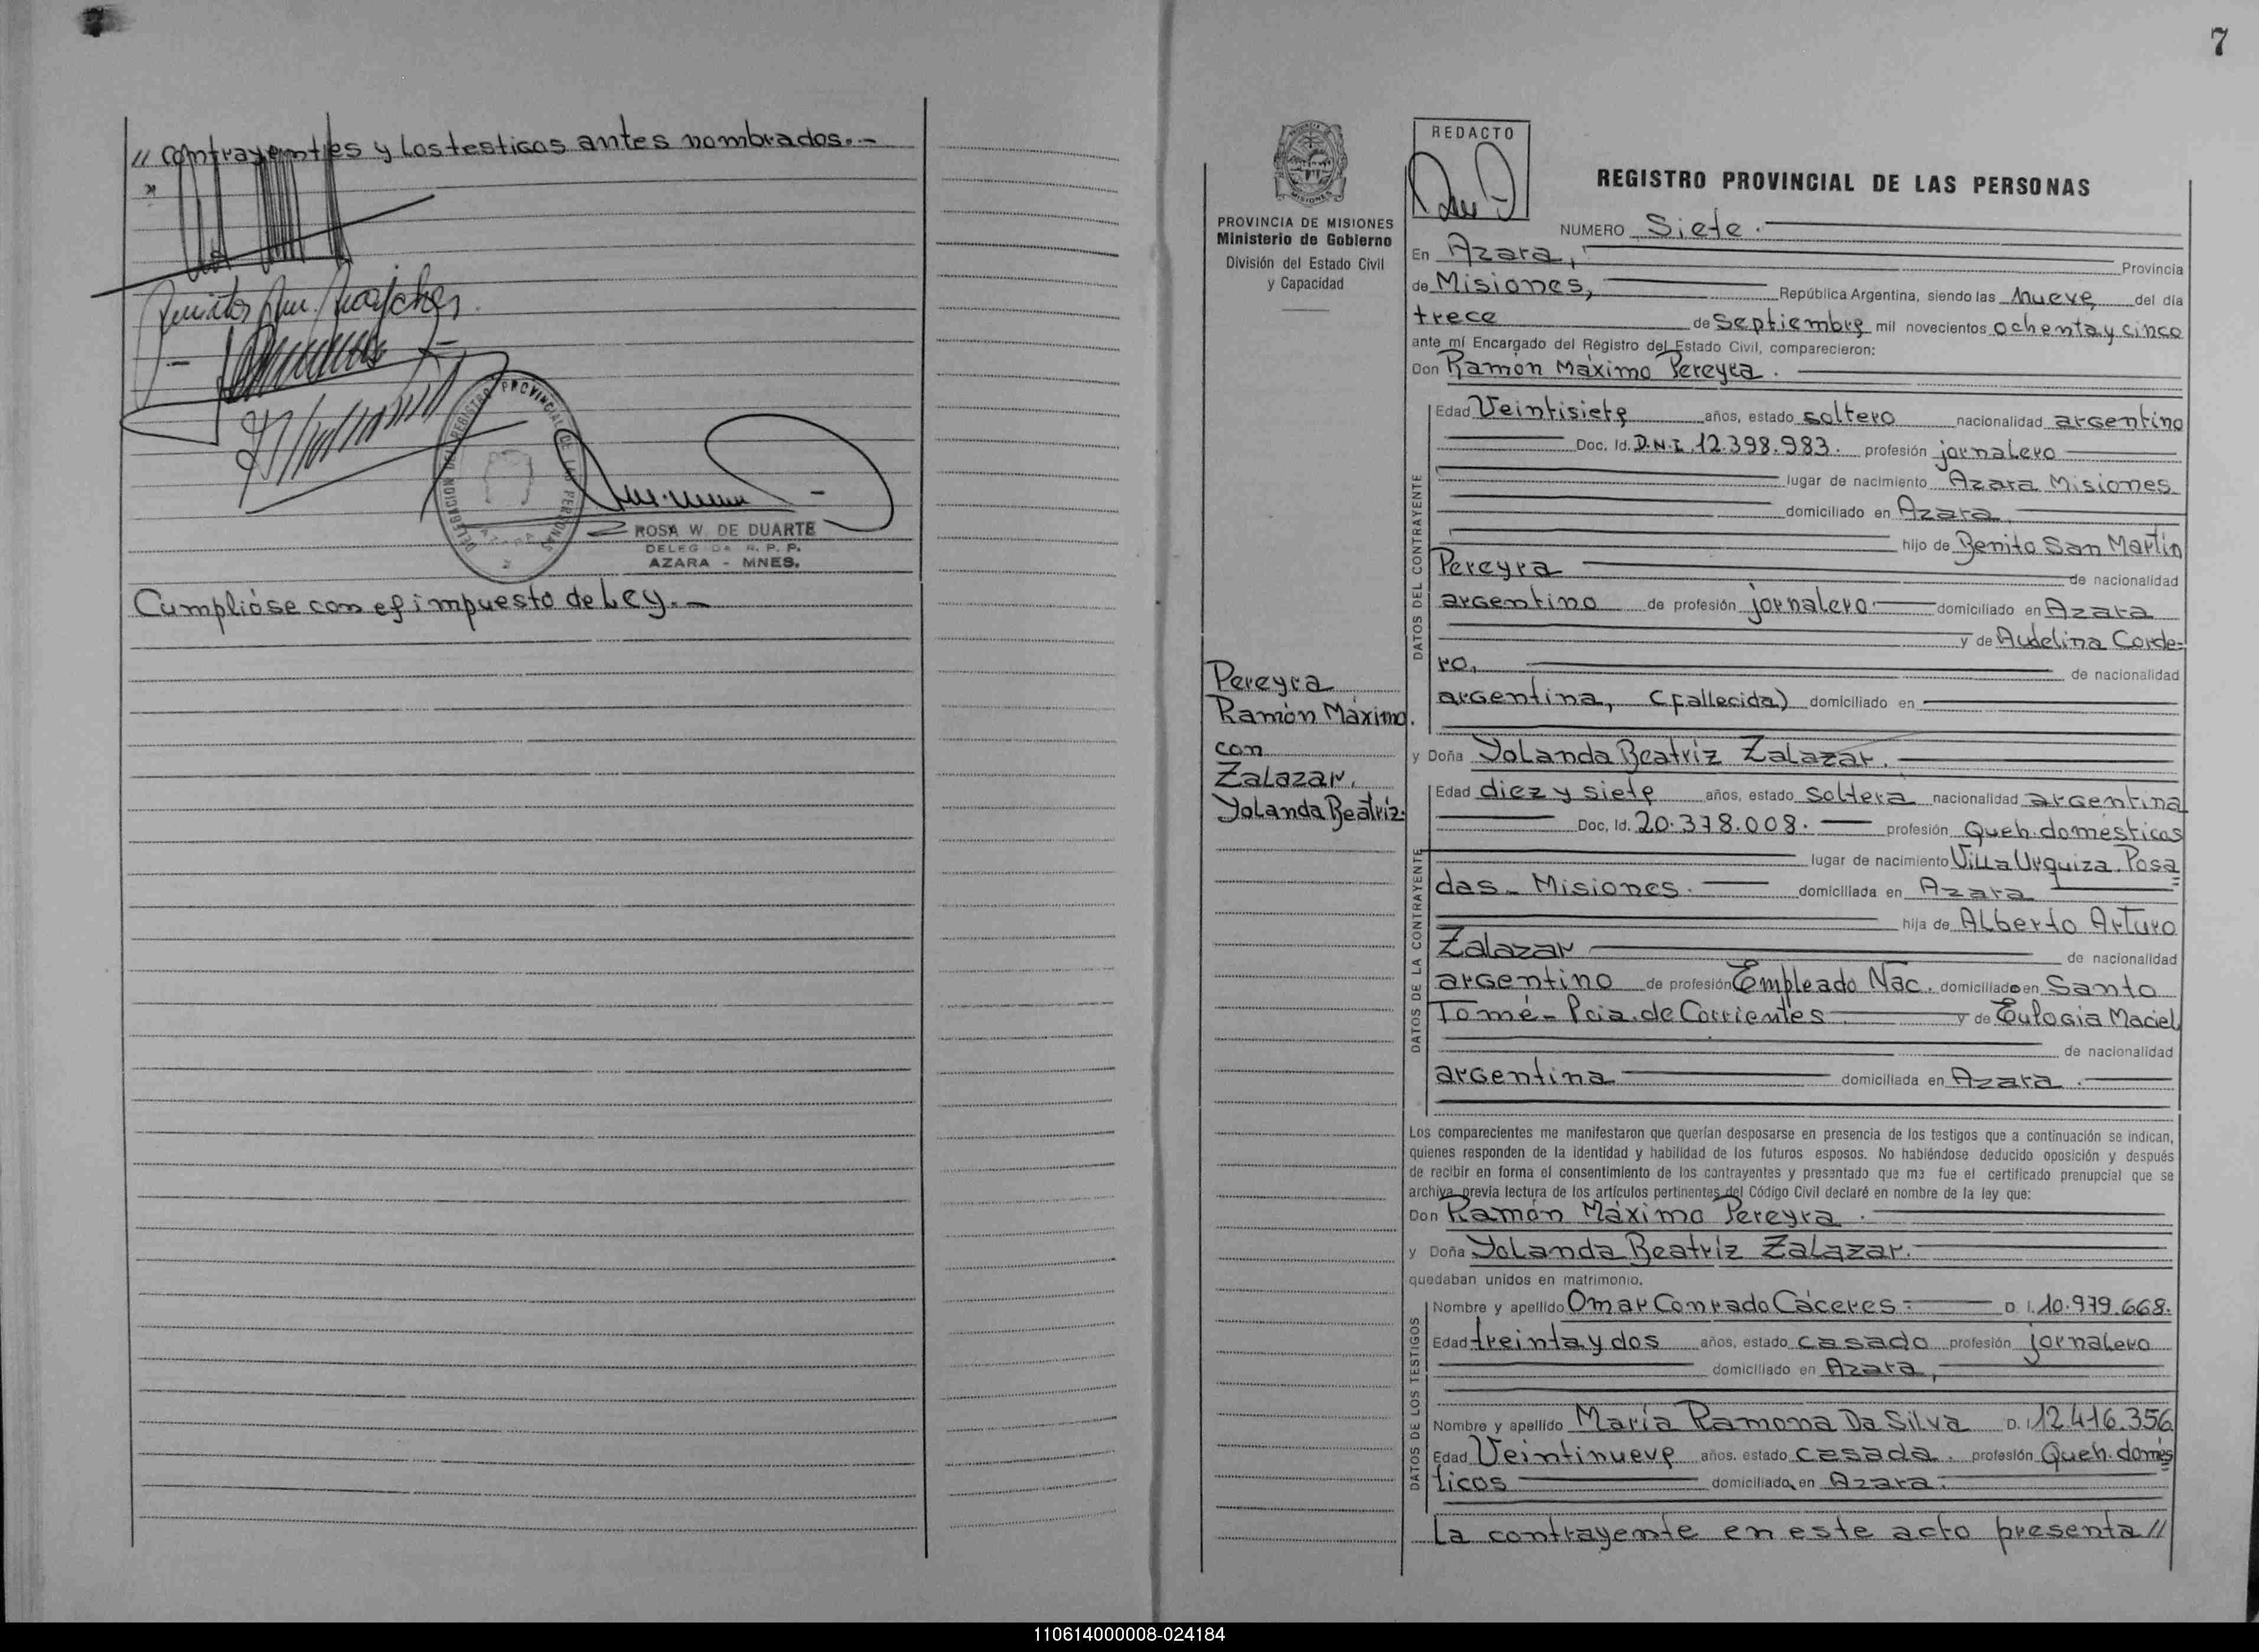 // contrayentes y los testigos antes nombrados.-
DELEGACION DEL REGISTRO PROVINCIAL DE LAS PERSONAS
AZARA
ROSA W. DE DUARTE
DELEG DA R. P. P.
AZARA - MNES.
Cumplióse con el impuesto de Ley.-
7
PROVINCIA DE MISIONES
Ministerio de Gobierno
División del Estado Civil
y Capacidad
Pereyra
Ramón Máximo.
con
Zalazar,
Yolanda Beatríz.
REDACTO
REGISTRO PROVINCIAL DE LAS PERSONAS
NUMERO Siete.
En Azara, Provincia
de Misiones, República Argentina, siendo las nueve del día
trece de Septiembre mil novecientos ochenta y cinco
ante mí Encargado del Registro del Estado Civil, comparecieron:
Don Ramón Máximo Pereyra.
DATOS DEL CONTRAYENTE
Edad Veintisiete años, estado soltero nacionalidad argentino
Doc. Id. D.N.I. 12.398.983. profesión jornalero
lugar de nacimiento Azara Misiones
domiciliado en Azara
hijo de Benito San Martín
Pereyra de nacionalidad
argentino de profesión jornalero domiciliado en Azara
y de Audelina Corde-
ro, de nacionalidad
argentina, (fallecida) domiciliado en
y Doña Yolanda Beatríz Zalazar.
DATOS DE LA CONTRAYENTE
Edad diez y siete años, estado soltera nacionalidad argentina
Doc. Id. 20.378.008. profesión Queh. domésticos
lugar de nacimiento Villa Urquiza. Posa
das - Misiones. domiciliada en Azara
hija de Alberto Arturo
Zalazar de nacionalidad
argentino de profesión Empleado Nac. domiciliado en Santo
Tomé - Pcia. de Corrientes y de Eulogia Maciel
de nacionalidad
argentina domiciliada en Azara.
Los comparecientes me manifestaron que querían desposarse en presencia de los testigos que a continuación se indican,
quienes responden de la identidad y habilidad de los futuros esposos. No habiéndose deducido oposición y después
de recibir en forma el consentimiento de los contrayentes y presentado que me fue el certificado prenupcial que se
archiva previa lectura de los artículos pertinentes del Código Civil declaré en nombre de la ley que:
Don Ramón Máximo Pereyra.
y Doña Yolanda Beatríz Zalazar.
quedaban unidos en matrimonio.
DATOS DE LOS TESTIGOS
Nombre y apellido Omar Conrado Cáceres. D. I. 10.979.668.
Edad treinta y dos años, estado casado profesión jornalero
domiciliado en Azara,
Nombre y apellido María Ramona Da Silva D. I. 12.416.356
Edad Veintinueve años, estado casada. profesión Queh. domés
ticos domiciliada en Azara.
La contrayente en este acto presenta//
110614000008-024184